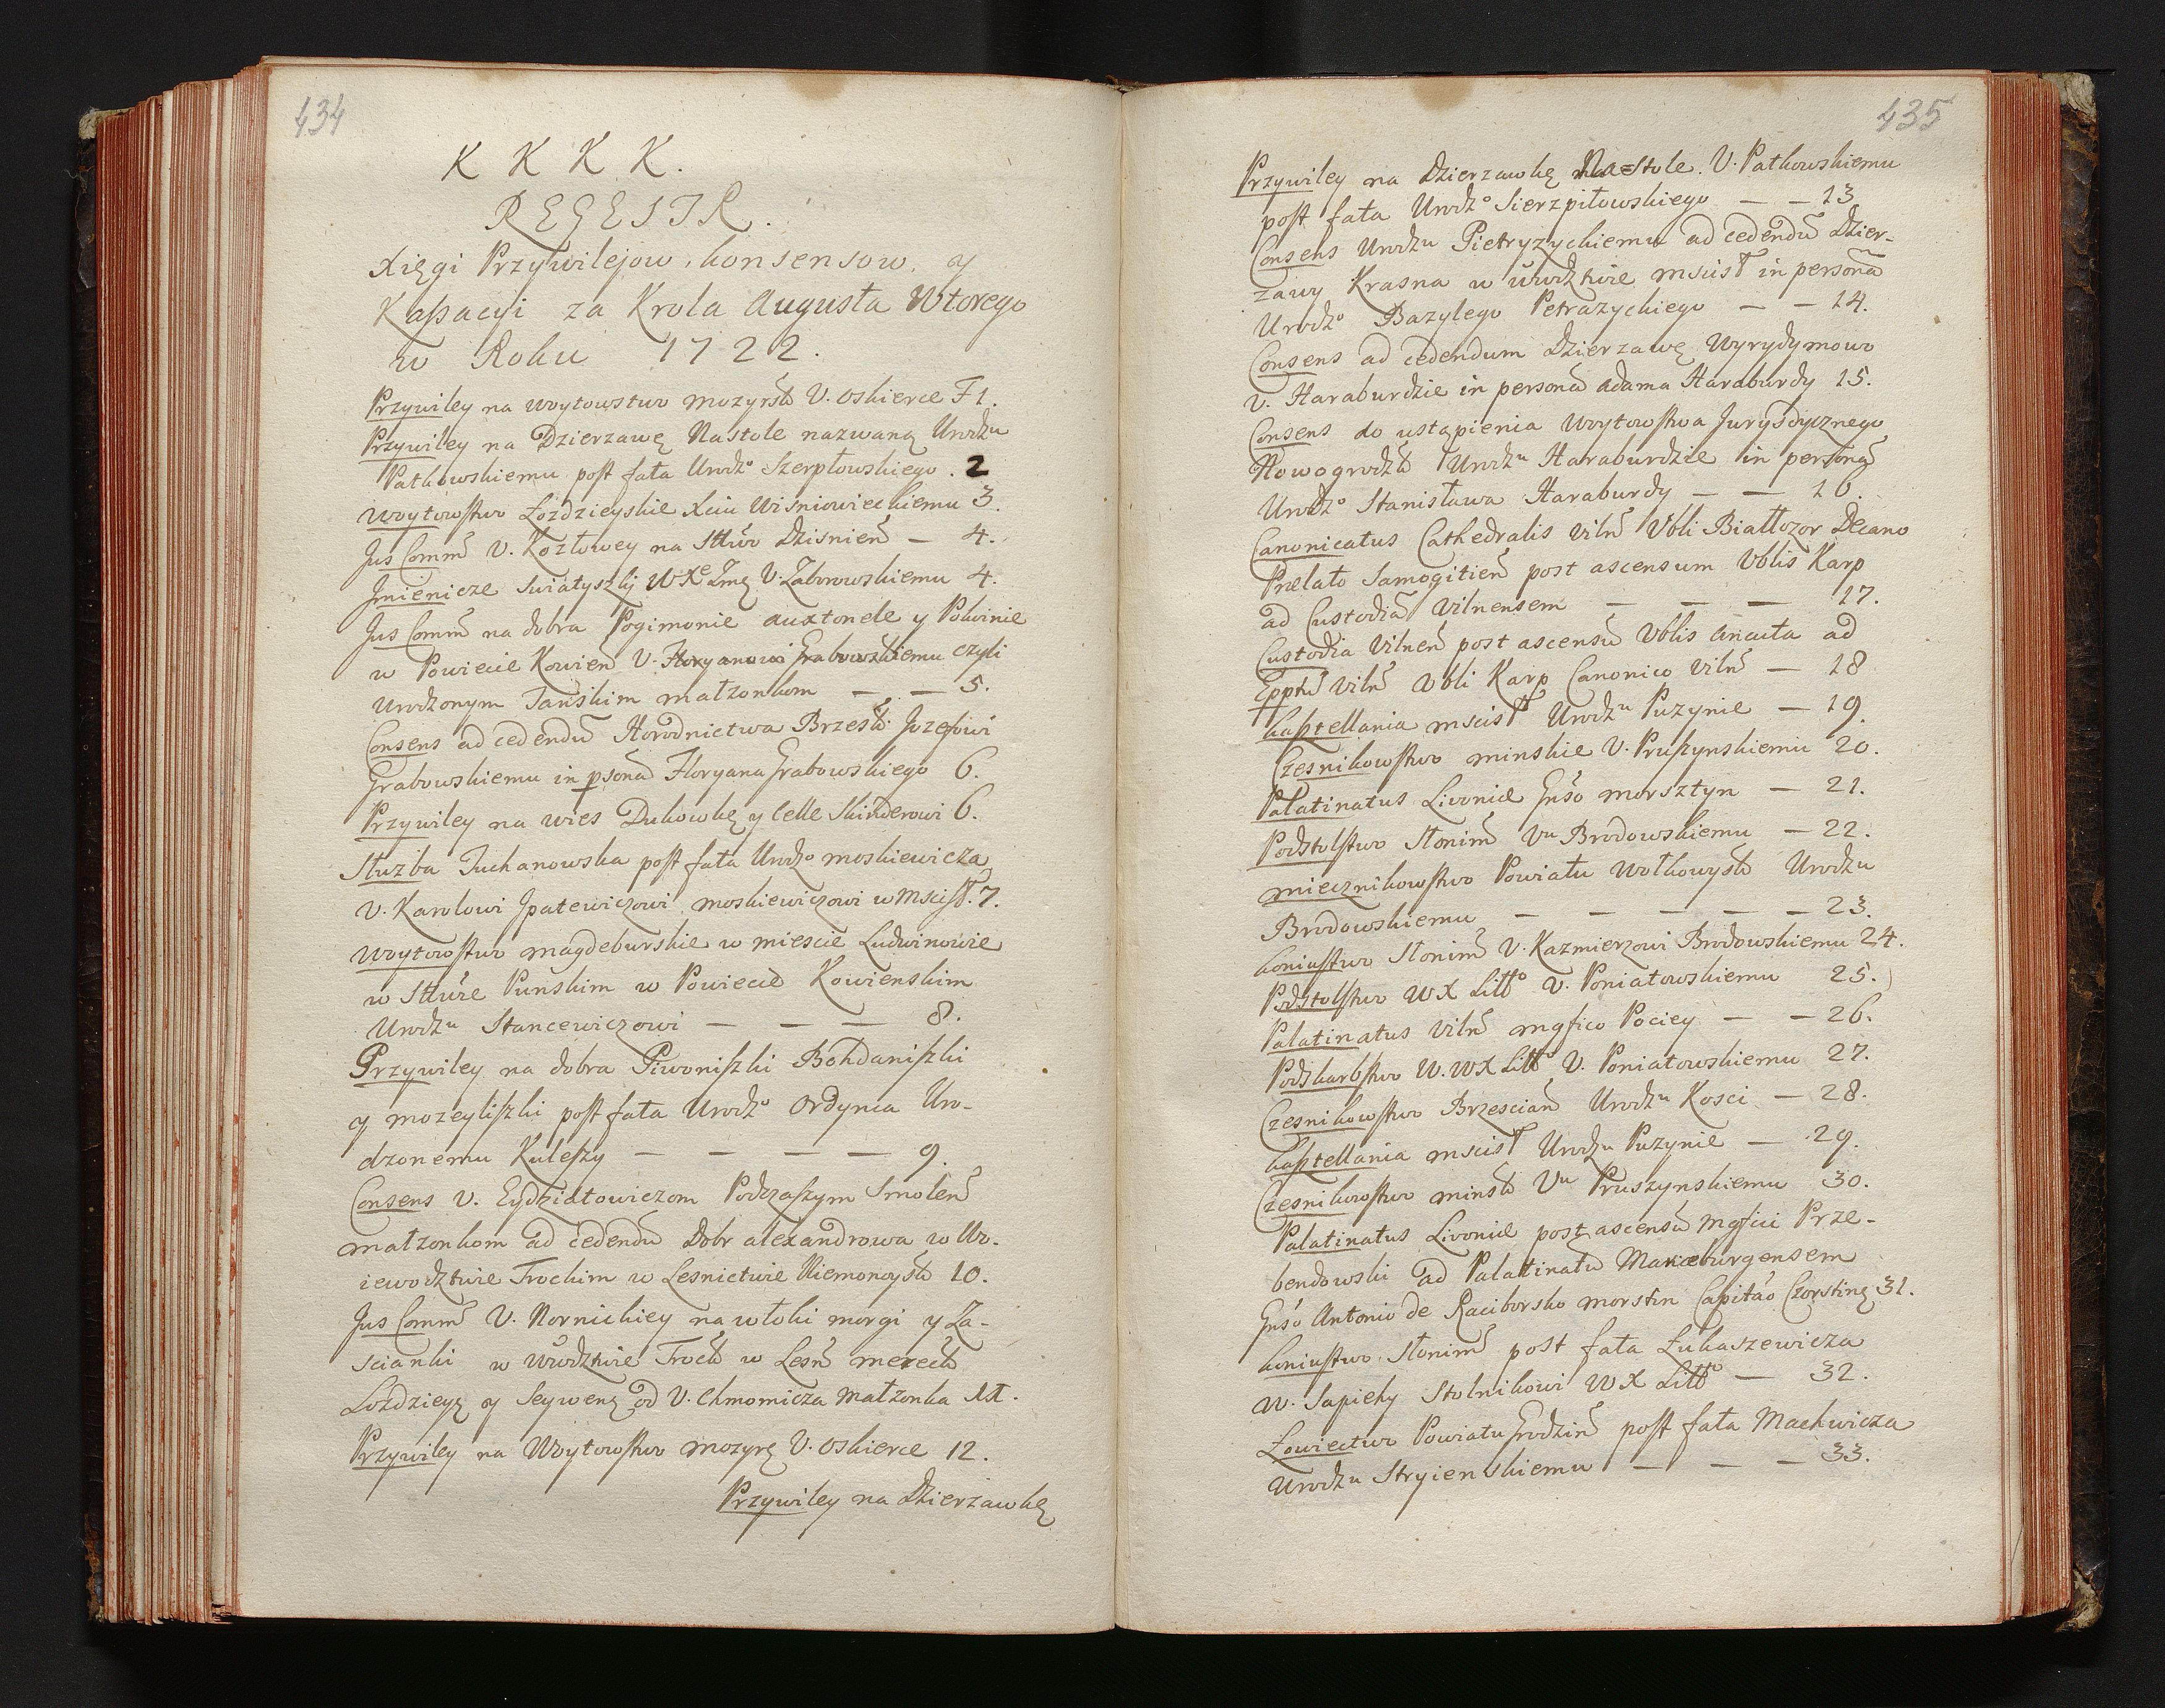 434
K K K K.
REGESTR.
Xięgi Przywilejow, konsensow, y
Kaßacyi za Krola Augusta Wtorego
w Roku 1722.
Przywiley na woytowstwo mozyrsk U. Oskierce F 1.
Przywiley na Dzierzawę Nastole nazwaną Urodzu
Patkowskiemu post fata Urodzo Szerpłowskiego. 2
Woytowstwo Łozdzieyskie Xciu Wisniowieckiemu 3.
Jus Comm̃ U. Kozłowey na Sttwo Dzisnień — 4.
Jmienicze Swiatyszki W Xe Zmę U. Zaborowskiemu 4.
Jus Comm̃ na dobra Pogimonie auxtonele y Polwinie
w Powiecie Kowień U. Floryanowi Grabowskiemu czyli
Urodzonym Tańskim małzonkom — — 5.
Consens ad cedendũ Horodnictwa Brzesk Jozefowi
Grabowskiemu in psonã Floryana Grabowskiego 6.
Przywiley na wies Dukowkę y Celle Skinderowi 6.
Służba Tuchanowska post fata Urodzo moskiewicza
U. Karolowi Jpatewiczowi moskiewiczowi w Mscisł. 7.
Woytowstwo magdeburskie w miescie Ludwinowie
w Sttwie Punskim w Powiecie Kowienskim
Urodzu Stancewiczowi — — — 8.
Przywiley na dobra Piwoniszki Bohdaniszki
y mozeyliszki post fata Urodzo Ordynca Uro-
dzonemu Kuleszy — — — — 9.
Consens U. Eydziatowiczom Podczaszym Smoleń
małzonkom ad cedendũ Dobr alexandrowa w Wo-
iewodztwie Trockim w Lesnictwie Niemonoysk 10.
Jus Comm̃ U. Nornickiey na włoki morgi y Za-
scianki w Wwodztwie Trock w Leśń mereck
Łozdzieyę y Seywenę od U. Chmomicza Małzonka 11.
Przywiley na Woytowstwo mozyrę U. Oskierce 12.
Przywiley na Dzierzawkę
435
Przywiley na Dzierzawkę Na=Stole. U. Patkowskiemu
post fata Urodzo Sierzpiłowskiego — — 13
Consens Urodzu Pietryzyckiemu ad cedendũ Dzier-
zawy Krasna w Wwodztwie mscisł in personã
Urodzo Bazylego Petrazyckiego — — 14.
Consens ad cedendum Dzierzawę Wyrydymowo
U. Haraburdzie in personã Adama Haraburdy 15.
Consens do ustąpienia Woytowstwa Jurysdycznego
Nowogrodzk Urodzu Haraburdzie in personã
Urodzo Stanisława Haraburdy — — 16.
Canonicatus Cathedralis Vilñ Vbli Białłozor Decano
Prælato Samogitień post ascensum Vblis Karp
ad Custodiã Vilnensem — — — 17.
Custodia Vilneñ post ascensũ Vblis Ancuta ad
Epptũ Vilñ Vbli Karp Canonico Vilñ — 18
Kasztellania mscisł Urodzu Puzynie — 19.
Czesnikowstwo minskie U. Pruszynskiemu 20.
Palatinatus Livoniæ Gńso morsztyn — 21.
Podstolstwo Słonim̃ Uu Brodowskiemu — 22.
miecznikowstwo Powiatu Wołkowysk Urodzu
Brodowskiemu — — — — — 23.
Koniustwo Słonim̃ U. Kazmierzowi Brodowskiemu 24.
Podstolstwo W X Litto U. Poniatowskiemu 25.
Palatinatus Vilñ mgfico Pociey — — 26.
Podskarbstwo W. W X Litto U. Poniatowskiemu 27.
Czesnikowstwo Brzescian Urodzu Kosci — 28.
Kasztellania mscisł Urodzu Puzynie — 29.
Czesnikowstwo minsk Uu Pruszynskiemu 30.
Palatinatus Livoniæ post ascensũ Mgfici Prze-
bendowski ad Palatinatũ Mariæburgensem
Gńso Antonio de Raciborsko morstin Capitáo Czorstinę 31.
Koniustwo Słonim̃ post fata Łukaszewicza
W. Sapiehy Stolnikowi W X Litto — 32.
Łowiectwo Powiatu Grodziń post fata Machwicza
Urodzu Stryienskiemu — — — 33.